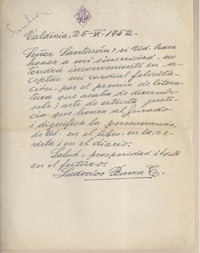 Valdivia, 25-VI-1952.
Señor Santiván: si Ud. hace
honor a mi sinceridad, no
tendrá inconveniente en a-
ceptar mi cordial felicita-
ción, por el premio de litera-
tura que acaba de discernír-
sele; acto de estricta justi-
cia que honra al jurado
i dignifica la perseverancia
de Ud. en el libro, en la re-
vista i en el diario.
Salud, prosperidad i
en el futuro.
Ludovico Barra C.